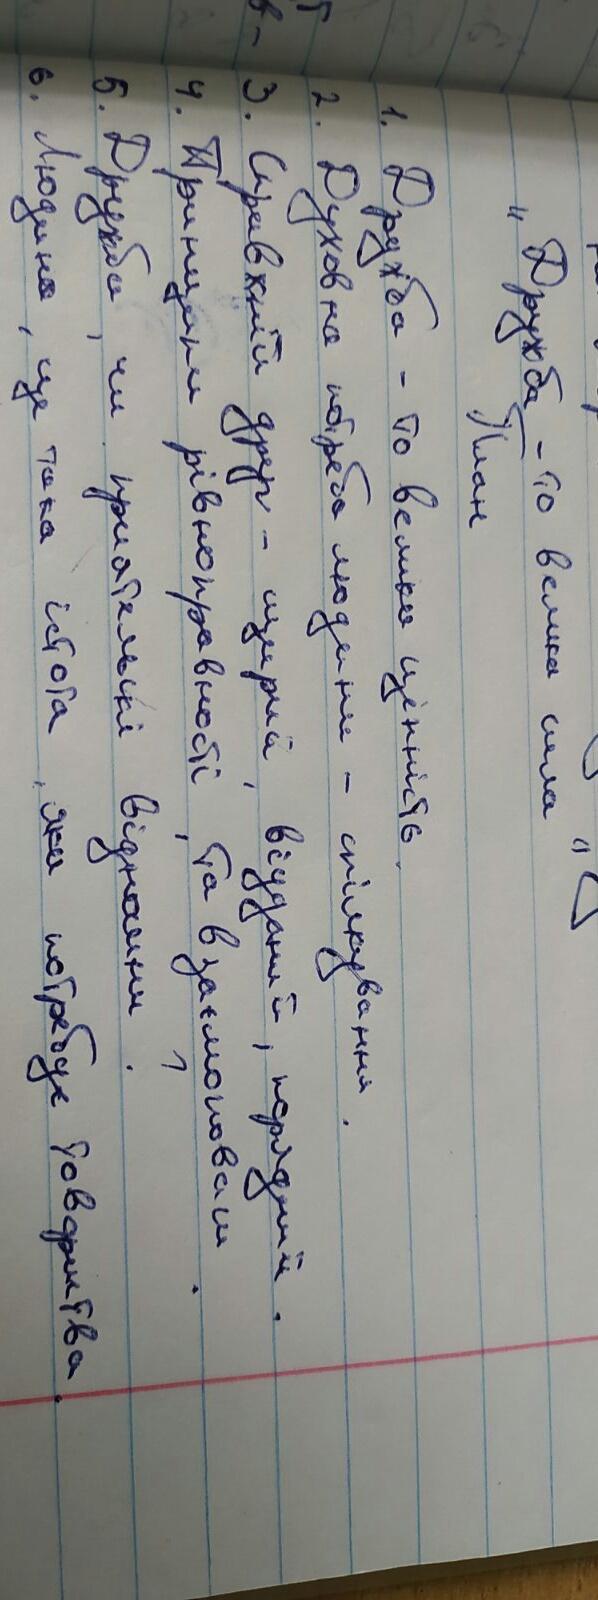 „Дружба - то велика сила"
План
1. Дружба - то велика цінність.
2. Духовна потреба людини - спілкування.
3. Справжній друг - щирий, відданий, порядний.
4. Принципи рівноправності, та взаємоповаги.
5. Дружба, чи приятельські відносини.
6. Людина, це така істота, яка потребує товариства.